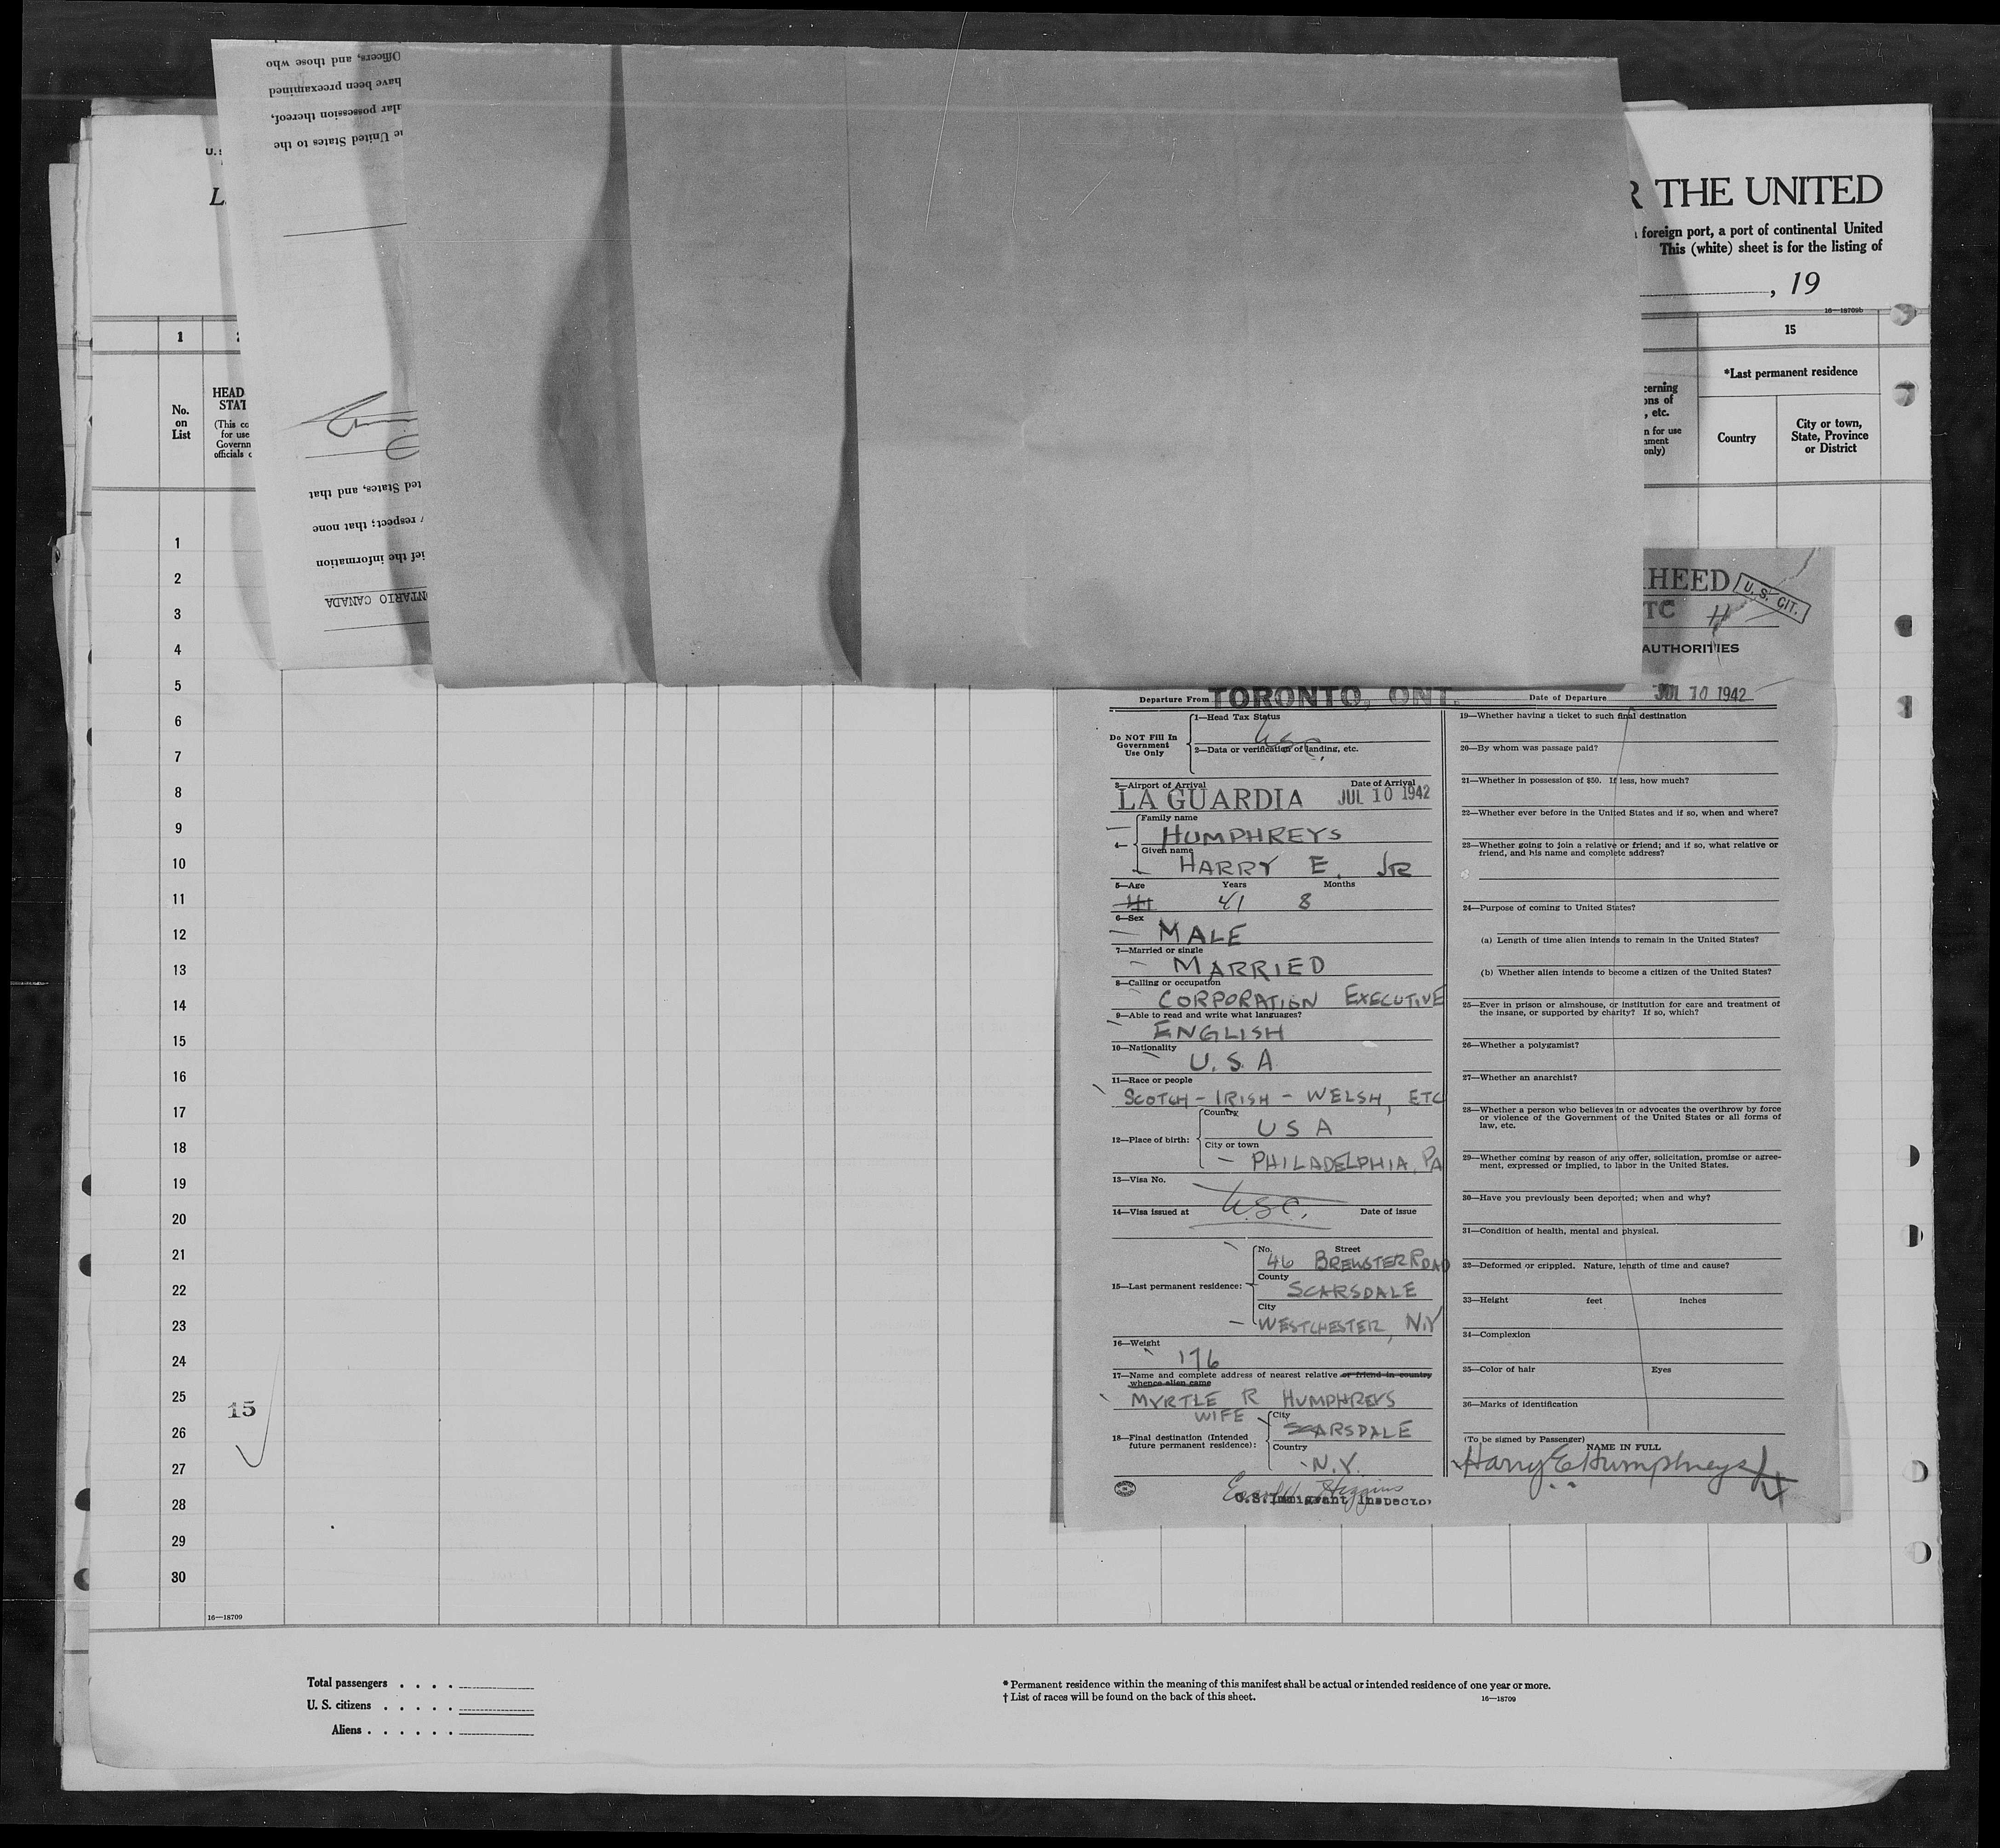 Officers, and those who
have been preexamined
ular possession thereof,
United States to the
ted States, and that
respect; that none
ief the information
NTARIO CANADA
U. S
L
R THE UNITED
foreign port, a port of continental United
This (white) sheet is for the listing of
, 19
16—18709b
1
15
No.
on
List
HEAD
STAT
(This co
for use
Governn
officials o
cerning
ons of
, etc.
n for use
nment
only)
*Last permanent residence
Country
City or town,
State, Province
or District
1
2
3
4
5
6
7
8
9
10
11
12
13
14
15
16
17
18
19
20
21
22
23
24
25
15
26
27
28
29
30
16—18709
HEED
U. S. CIT.
TC H
AUTHORITIES
Departure From TORONTO, ONT.
Date of Departure JUL 10 1942
Do NOT Fill In
Government
Use Only
1—Head Tax Status
USC.
2—Data or verification of landing, etc.
3—Airport of Arrival Date of Arrival
LA GUARDIA JUL 10 1942
4—
Family name
HUMPHREYS
Given name
HARRY E. JR
5—Age Years Months
41 41 8
6—Sex
MALE
7—Married or single
MARRIED
8—Calling or occupation
CORPORATION EXECUTIVE
9—Able to read and write what languages?
ENGLISH
10—Nationality
U. S. A
11—Race or people
SCOTCH - IRISH - WELSH, ETC
12—Place of birth:
Country
U S A
City or town
PHILADELPHIA, PA
13—Visa No.
USC.
14—Visa issued at Date of issue
15—Last permanent residence:
No. Street
46 BREWSTER ROAD
County
SCARSDALE
City
WESTCHESTER, N.Y
16—Weight
176
17—Name and complete address of nearest relative or friend in country
whence alien came
MYRTLE R HUMPHREYS
WIFE
18—Final destination (Intended
future permanent residence):
City
SCARSDALE
Country
N.Y.
Higgins
U.S. Immigrant Inspector
19—Whether having a ticket to such final destination
20—By whom was passage paid?
21—Whether in possession of $50. If less, how much?
22—Whether ever before in the United States and if so, when and where?
23—Whether going to join a relative or friend; and if so, what relative or
friend, and his name and complete address?
24—Purpose of coming to United States?
(a) Length of time alien intends to remain in the United States?
(b) Whether alien intends to become a citizen of the United States?
25—Ever in prison or almshouse, or institution for care and treatment of
the insane, or supported by charity? If so, which?
26—Whether a polygamist?
27—Whether an anarchist?
28—Whether a person who believes in or advocates the overthrow by force
or violence of the Government of the United States or all forms of
law, etc.
29—Whether coming by reason of any offer, solicitation, promise or agree-
ment, expressed or implied, to labor in the United States.
30—Have you previously been deported; when and why?
31—Condition of health, mental and physical.
32—Deformed or crippled. Nature, length of time and cause?
33—Height feet inches
34—Complexion
35—Color of hair Eyes
36—Marks of identification
(To be signed by Passenger)
NAME IN FULL
Harry E Humphreys Jr
Total passengers . . . .
U. S. citizens . . . . .
Aliens . . . . . .
* Permanent residence within the meaning of this manifest shall be actual or intended residence of one year or more.
† List of races will be found on the back of this sheet.
16—18709